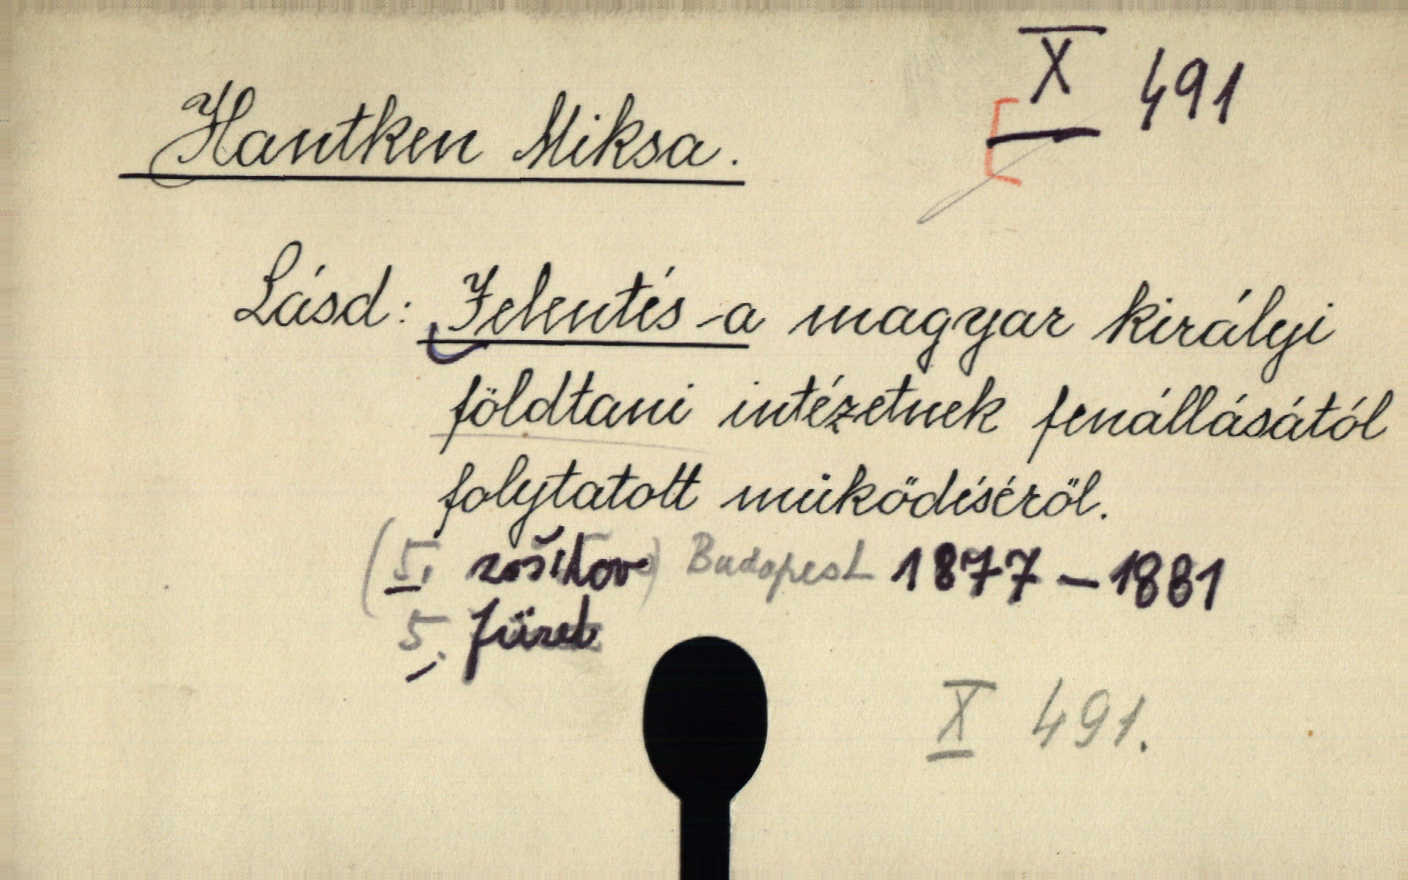 X 491
Hantken Miksa.
Lásd: Jelentés a magyar királyi
földtani intézetnek fenállásától
folytatott müködéséről.
(5. zošitov) Budapest 1877-1881
5. füzet
X 491.